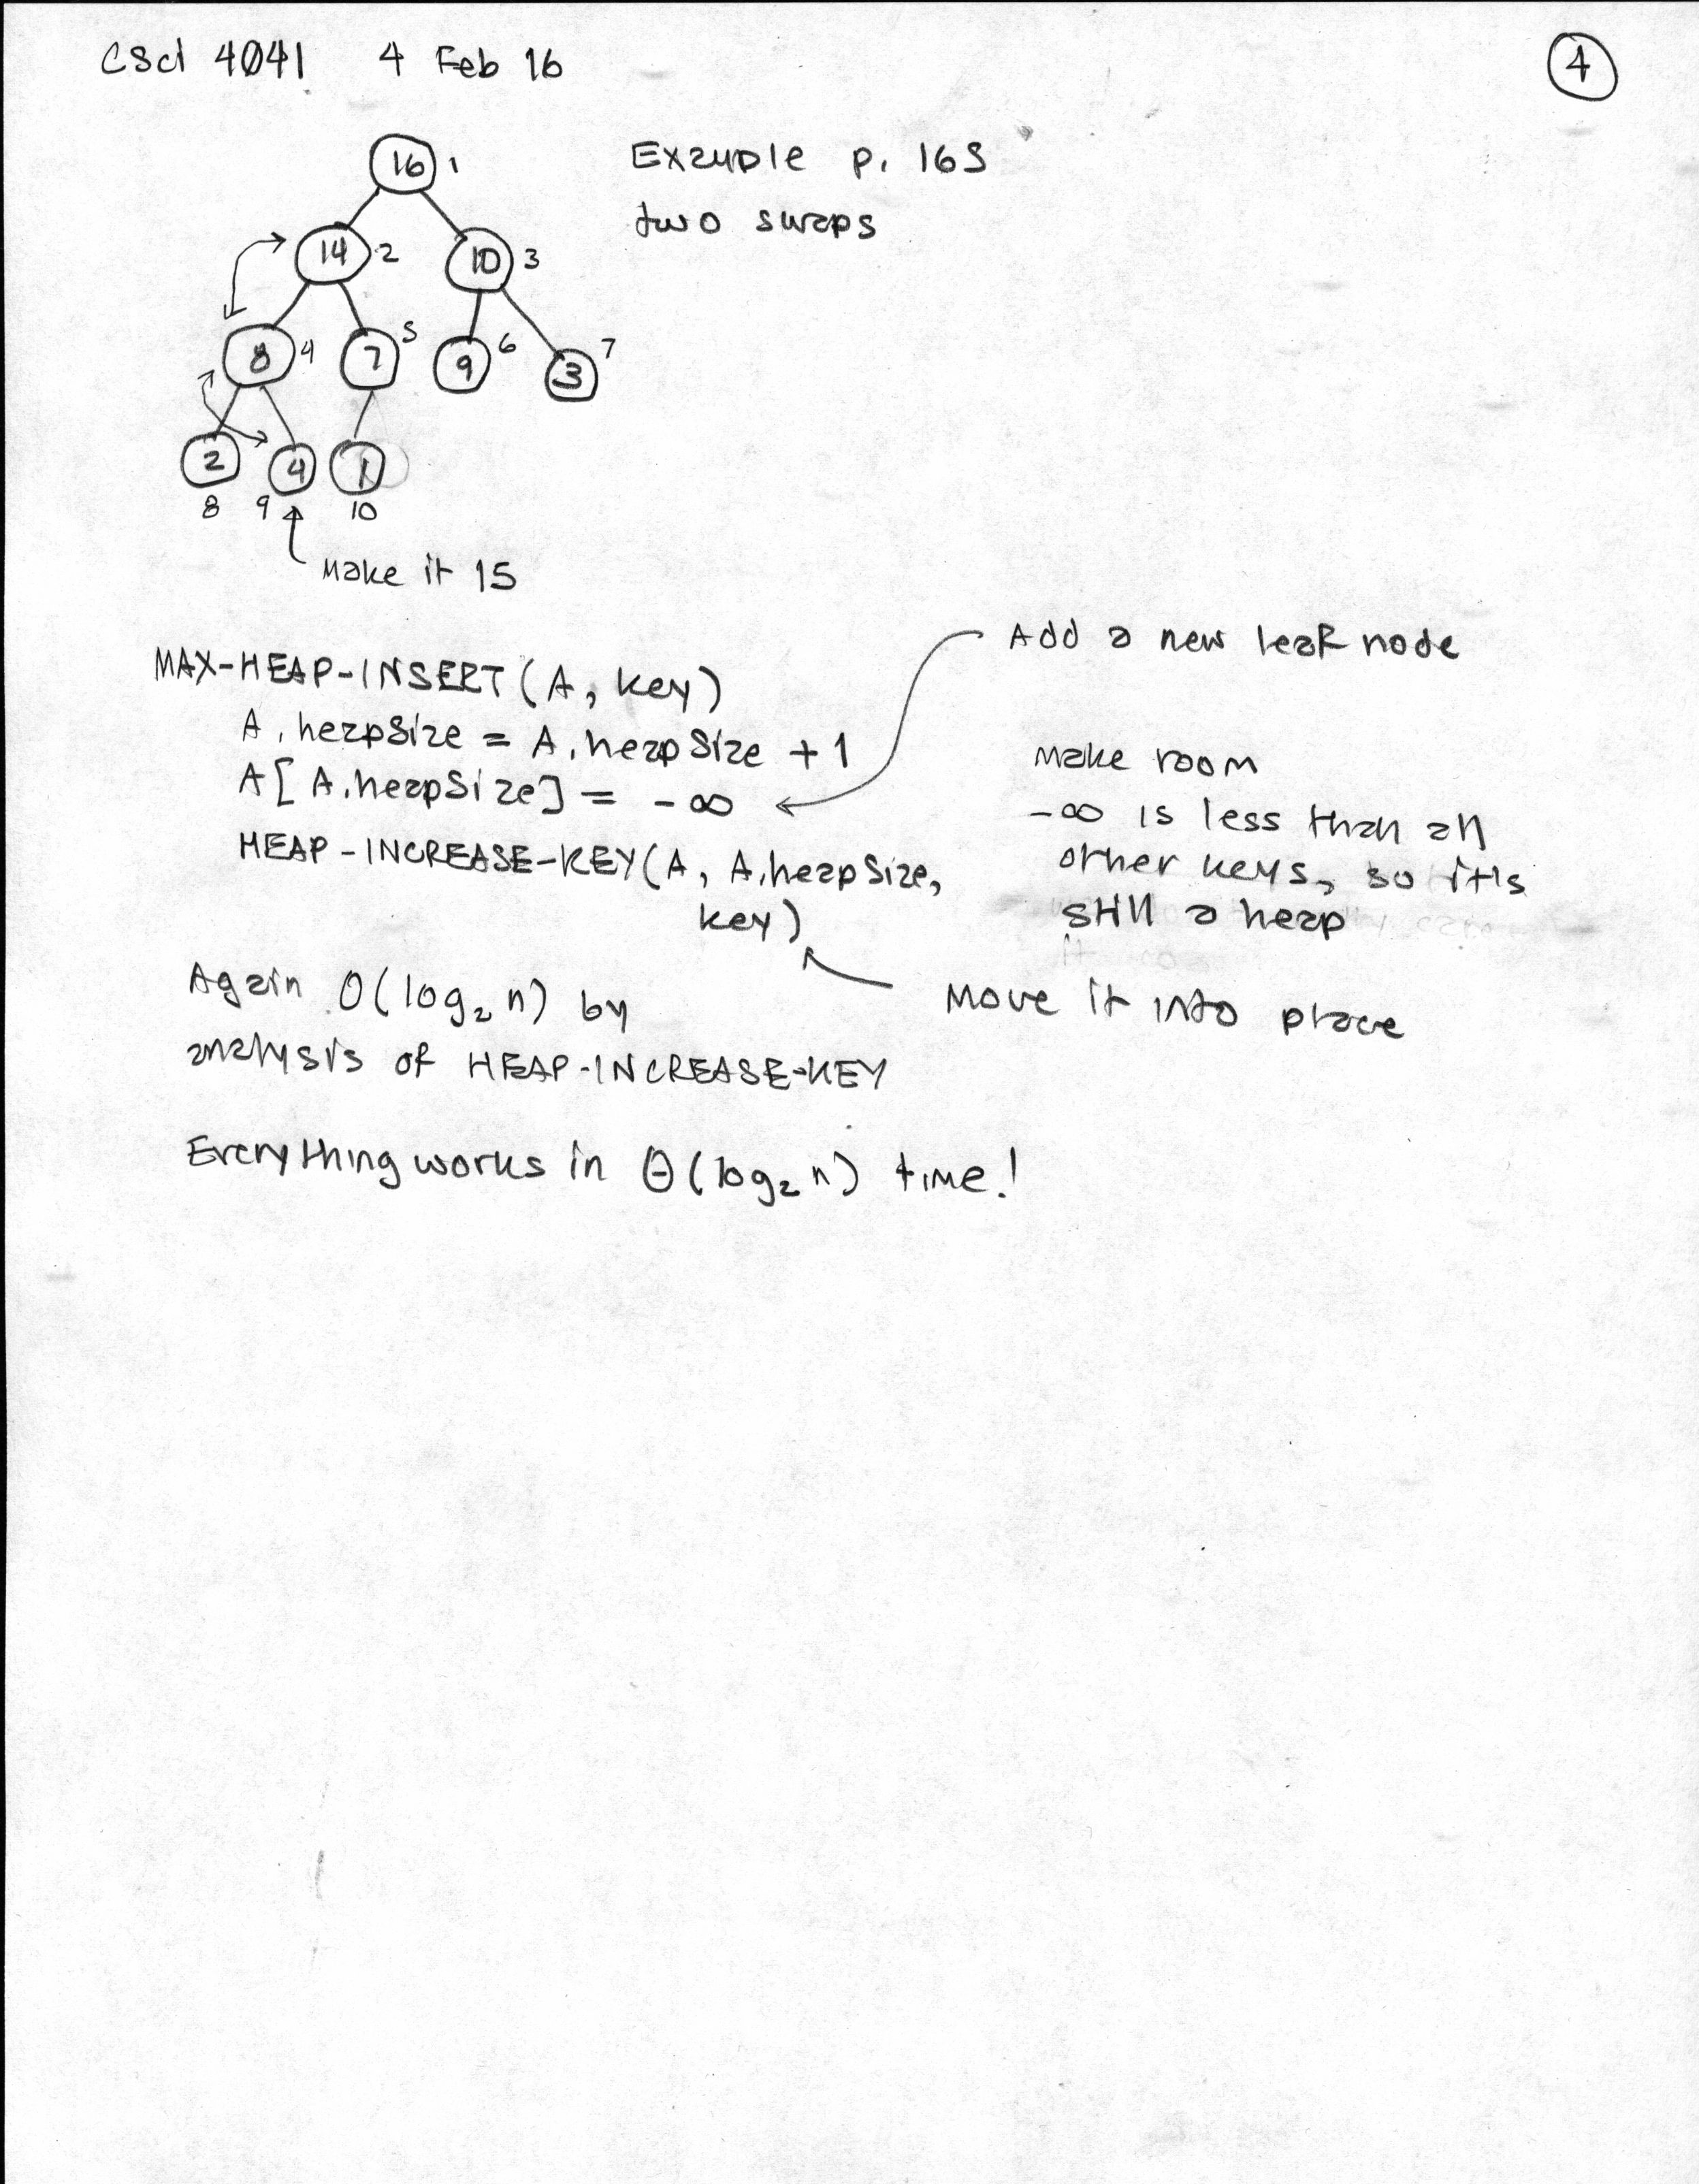 CSCI 4041 4 Feb 16
4
16 1
Example p. 165
two swaps
14 2 10 3
8 4 7 5 9 6 3 7
2 4 1
8 9 10
Make it 15
Add a new leaf node
MAX-HEAP-INSERT(A, key)
A.heapSize = A.heapSize + 1
A[A.heapSize] = -∞
HEAP-INCREASE-KEY(A, A.heapSize,
key)
Make room
-∞ is less than all
other keys, so it's
still a heap
Move it into place
Again O(log₂ n) by
analysis of HEAP-INCREASE-KEY
Everything works in Θ(log₂ n) time!